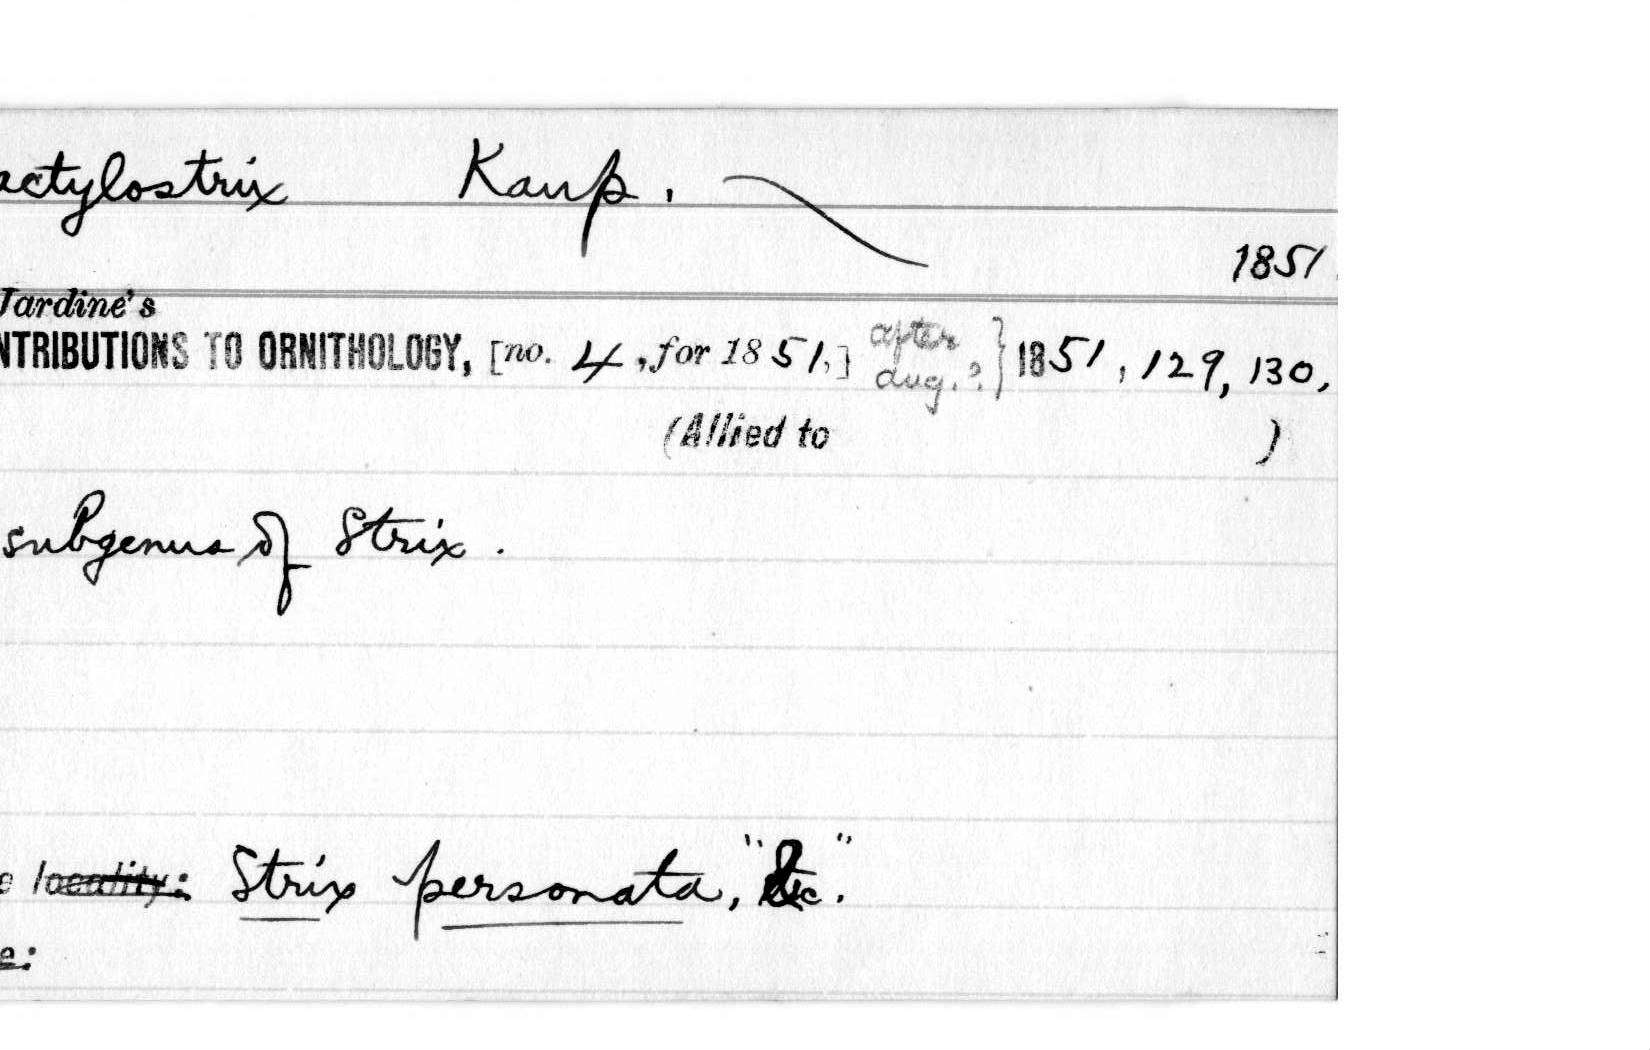 actylostrix Kaup.
1851
Jardine's
NTRIBUTIONS TO ORNITHOLOGY, [no. 4, for 1851,] after Aug.?} 1851, 129, 130,
(Allied to )
subgenus of Strix.
e locality: Strix personata, "&c."
e: